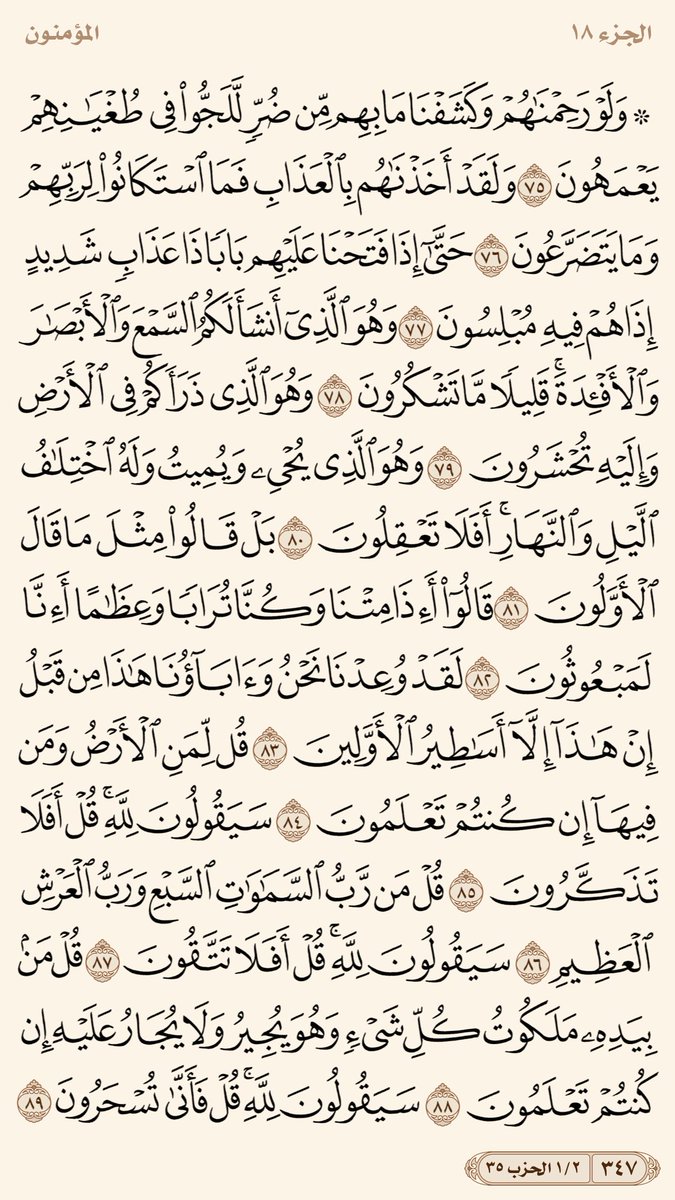 الجزء ١٨
المؤمنون
۞ وَلَوْ رَحِمْنَٰهُمْ وَكَشَفْنَا مَا بِهِم مِّن ضُرٍّ لَّلَجُّوا۟ فِى طُغْيَٰنِهِمْ
يَعْمَهُونَ ٧٥ وَلَقَدْ أَخَذْنَٰهُم بِٱلْعَذَابِ فَمَا ٱسْتَكَانُوا۟ لِرَبِّهِمْ
وَمَا يَتَضَرَّعُونَ ٧٦ حَتَّىٰٓ إِذَا فَتَحْنَا عَلَيْهِم بَابًا ذَا عَذَابٍ شَدِيدٍ
إِذَا هُمْ فِيهِ مُبْلِسُونَ ٧٧ وَهُوَ ٱلَّذِىٓ أَنشَأَ لَكُمُ ٱلسَّمْعَ وَٱلْأَبْصَٰرَ
وَٱلْأَفْـِٔدَةَ ۚ قَلِيلًا مَّا تَشْكُرُونَ ٧٨ وَهُوَ ٱلَّذِى ذَرَأَكُمْ فِى ٱلْأَرْضِ
وَإِلَيْهِ تُحْشَرُونَ ٧٩ وَهُوَ ٱلَّذِى يُحْىِۦ وَيُمِيتُ وَلَهُ ٱخْتِلَٰفُ
ٱلَّيْلِ وَٱلنَّهَارِ ۚ أَفَلَا تَعْقِلُونَ ٨٠ بَلْ قَالُوا۟ مِثْلَ مَا قَالَ
ٱلْأَوَّلُونَ ٨١ قَالُوٓا۟ أَءِذَا مِتْنَا وَكُنَّا تُرَابًا وَعِظَٰمًا أَءِنَّا
لَمَبْعُوثُونَ ٨٢ لَقَدْ وُعِدْنَا نَحْنُ وَءَابَآؤُنَا هَٰذَا مِن قَبْلُ
إِنْ هَٰذَآ إِلَّآ أَسَٰطِيرُ ٱلْأَوَّلِينَ ٨٣ قُل لِّمَنِ ٱلْأَرْضُ وَمَن
فِيهَآ إِن كُنتُمْ تَعْلَمُونَ ٨٤ سَيَقُولُونَ لِلَّهِ ۚ قُلْ أَفَلَا
تَذَكَّرُونَ ٨٥ قُلْ مَن رَّبُّ ٱلسَّمَٰوَٰتِ ٱلسَّبْعِ وَرَبُّ ٱلْعَرْشِ
ٱلْعَظِيمِ ٨٦ سَيَقُولُونَ لِلَّهِ ۚ قُلْ أَفَلَا تَتَّقُونَ ٨٧ قُلْ مَنۢ
بِيَدِهِۦ مَلَكُوتُ كُلِّ شَىْءٍ وَهُوَ يُجِيرُ وَلَا يُجَارُ عَلَيْهِ إِن
كُنتُمْ تَعْلَمُونَ ٨٨ سَيَقُولُونَ لِلَّهِ ۚ قُلْ فَأَنَّىٰ تُسْحَرُونَ ٨٩
٣٤٧
١/٢ الحزب ٣٥